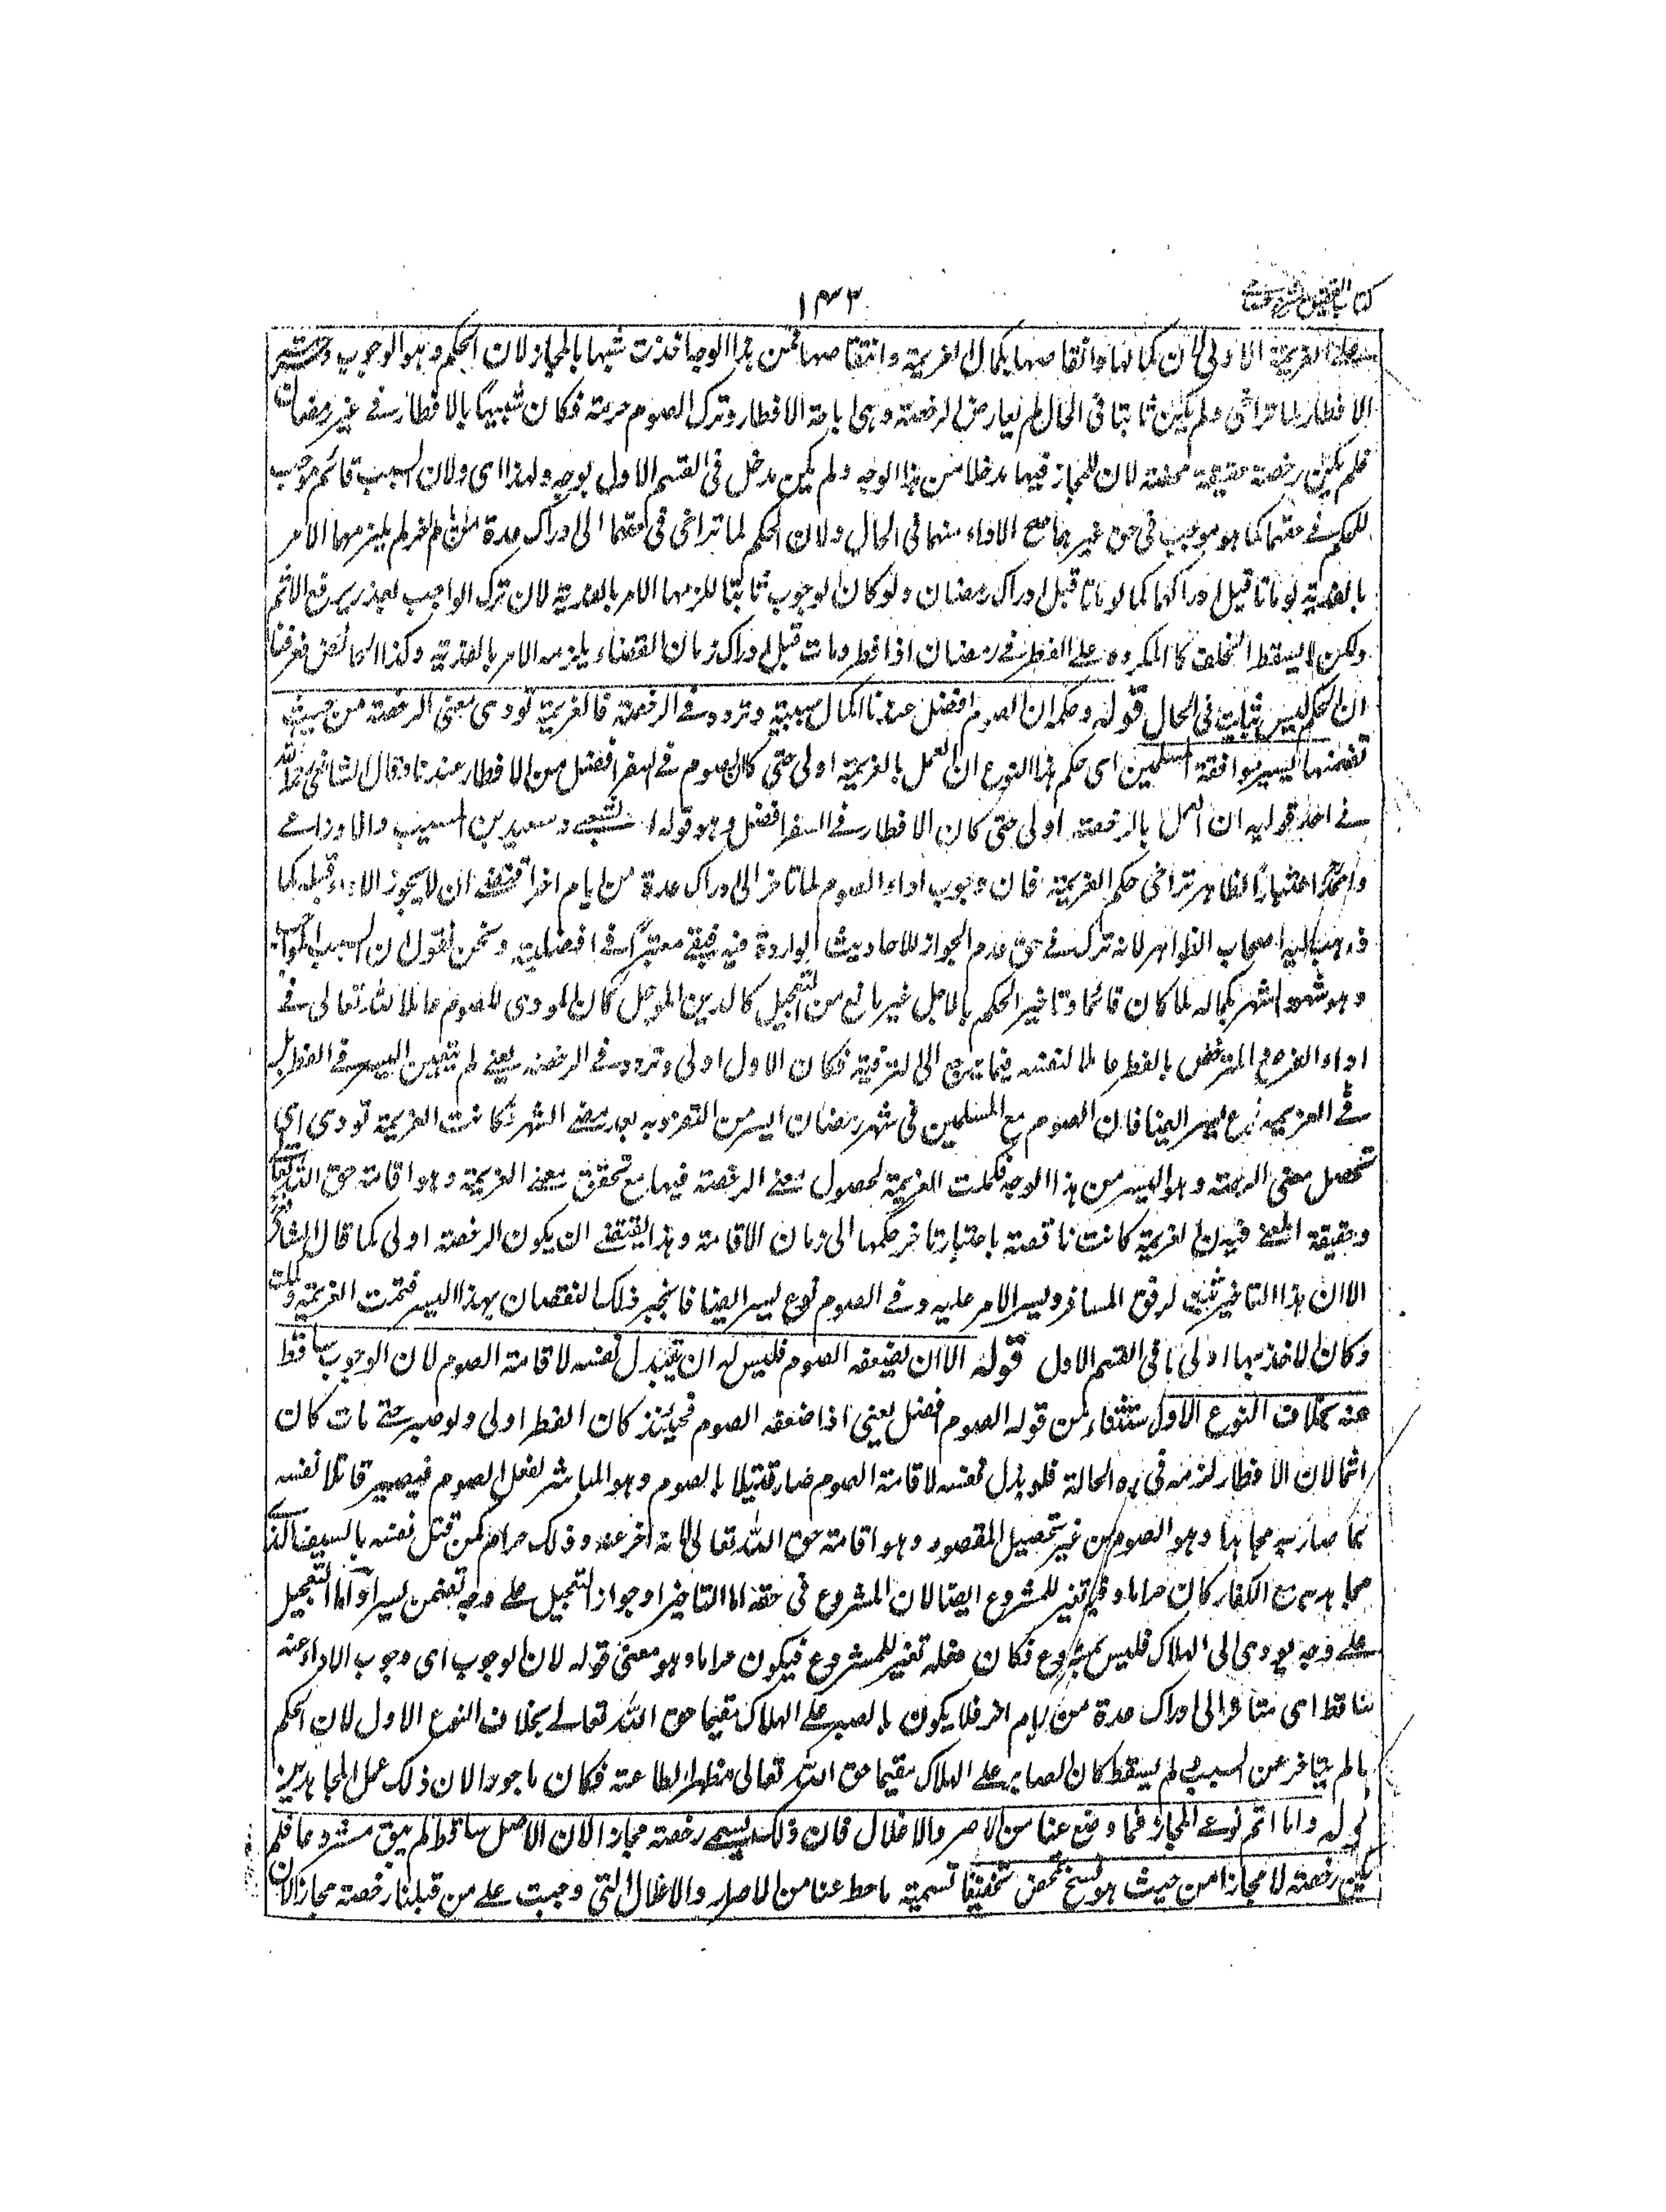 ١٤٣
العزيمة الاولى لان كمالها وانتقاصها بكمال العزيمة وانتقاصها فمن هذا الوجه اخذت شبها بالمجاز لان الحكم وهو الوجوب
الافطار لما تراخى ولم يكن ثابتا فى الحال لم يعارض الرخصة وهى اباحة الافطار وترك الصوم حرمة فكان شبيها بالافطار فے غير رمضان
فلم يكن رخصة حقيقية محضة لان للمجاز فيها مدخلا من هذا الوجه ولم يكن مدخل فى القسم الاول بوجه ولهذا اى ولان السبب قائم موجب
للحكم فے حقهما كما هو موجب فى حق غيرهما صح الاداء منهما فى الحال ولان الحكم لما تراخى فى حقهما الى ادراك عدة من ايام اخر لم يلزمهما الامر
بالفدية لو ماتا قبل ادراكها كما لو ماتا قبل ادراك رمضان ولو كان الوجوب ثابتا للزمهما الامر بالفدية لان ترك الواجب بعذر يرفع الاثم
ولكن لا يسقط الخلف كالمكره علے الفطر فے رمضان اذا افطر ومات قبل ادراك زمان القضاء يلزمه الامر بالفدية وكذا الحائض فعرفنا
ان الحكم ليس بثابت فى الحال قوله وحكمه ان الصوم افضل عندنا لكمال سببية وتردد فے الرخصة فالعزيمة تودى معنى الرخصة من حيث
تضمنها اليسر بموافقة المسلمين اى حكم هذا النوع ان العمل بالعزيمة اولى حتى كان الصوم فے السفر افضل من الافطار عندنا وقال الشافعى رحمه الله
فے احد قوليه ان العمل بالرخصة اولى حتى كان الافطار فے السفر افضل وهو قول الشعبے وسعيد بن المسيب والاوزاعے
واحمد اعتبارا لظاهر تراخى حكم العزيمة فان وجوب اداء الصوم لما تاخر الى ادراك عدة من ايام اخر اقتضے ان لا يجوز الاداء قبله كما
ذهب اليه اصحاب الظواهر لانه ترك فے حق عدم الجواز للاحاديث الواردة فيه فيبقے معتبرا فے افضلية ونحن نقول ان السبب الموجب
وهو شهود الشهر بكماله لما كان قائما وتاخير الحكم بالاجل غير مانع من التعجيل كالدين المؤجل كان المودى للصوم عاملا لله تعالى فے
اداء الفرض والمترخص بالفطر عاملا لنفسه فيما يرجع الى الترفيه فكان الاول اولى وتردد فے الرخصة يعنے لم يتعين اليسر فے الفطر بل
فے العزيمة نوع يسر ايضا فان الصوم مع المسلمين فى شهر رمضان ايسر من التفرد به بعد مضے الشهر فكانت العزيمة تودى اى
تحصل معنى الرخصة وهو اليسر من هذا الوجه فكملت العزيمة لحصول معنے الرخصة فيها مع تحقق معنے العزيمة وهو اقامة حق الله تعالى
وحقيقة المعنے فيه ان العزيمة كانت ناقصة باعتبار تاخر حكمها الى زمان الاقامة وهذا يقتضے ان يكون الرخصة اولى كما قال الشافعى
الا ان هذا التاخير ثبت لرفق المسافر وليسر الامر عليه وفے الصوم نوع يسر ايضا فانجبر ذلك النقصان بهذا اليسر فتمت العزيمة وكملت
وكان الاخذ بها اولى كما فى القسم الاول قوله الا ان يضعفه الصوم فليس له ان يبذل نفسه لاقامة الصوم لان الوجوب ساقط
عنه بخلاف النوع الاول استثناء من قوله الصوم افضل يعنى اذا ضعفه الصوم فحينئذ كان الفطر اولى ولو صبر حتے مات كان
اثما لان الافطار لزمه فى هذه الحالة فلو بذل نفسه لاقامة الصوم صار قتيلا بالصوم وهو المباشر لفعل الصوم فيصير قاتلا نفسه
بما صار به مجاهدا وهو الصوم من غير تحصيل المقصود وهو اقامة حق الله تعالى لانه اخر عنه وذلك حرام كمن قتل نفسه بالسيف الذے
يجاهد به مع الكفار كان حراما وفيه تغير للمشروع ايضا لان المشروع فى حقه اما التاخير او جواز التعجيل علے وجه تضمن يسرا واما التعجيل
علے وجه يودى الى الهلاك فليس بمشروع فكان فعله تغير للمشروع فيكون حراما وهو معنى قوله لان الوجوب اى وجوب الاداء عنه
ساقط اى متاخر الى ادراك عدة من ايام اخر فلا يكون بالصبر علے الهلاك مقيما حق الله تعالے بخلاف النوع الاول لان الحكم
لما لم يتاخر عن السبب ولم يسقط كان الصابر علے الهلاك مقيما حق الله تعالى مظهرا لطاعته فكان ماجورا لان ذلك عمل المجاهدين
قوله واما اتم نوعے المجاز فما وضع عنا من الاصر والاغلال فان ذلك يسمے رخصة مجازا لان الاصل ساقط لم يبق مشروعا فلم
يكن رخصة الا مجازا من حيث هو نسخ تمحض تخفيفا تسمية ما حط عنا من الاصار والاغلال التى وجبت علے من قبلنا رخصة مجاز لان